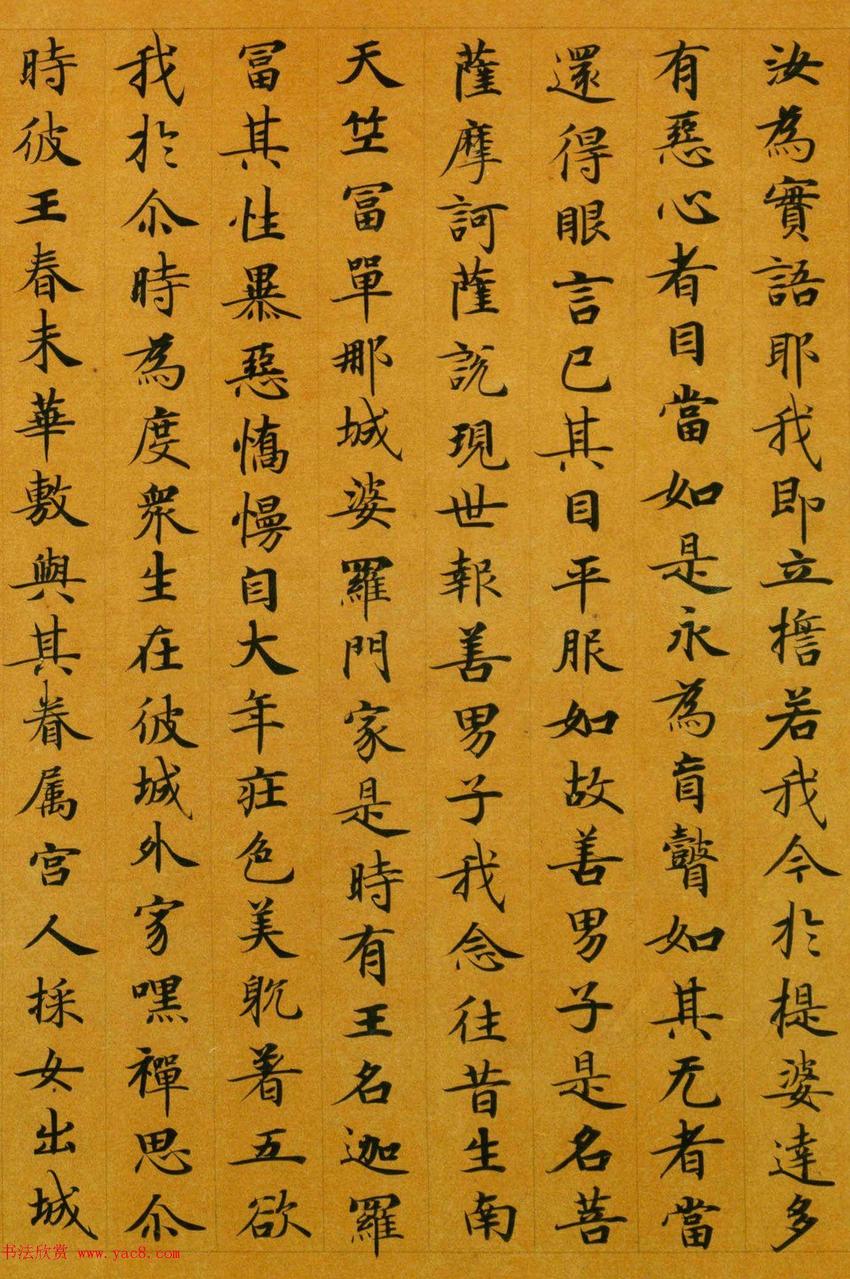 汝為實語耶我即立擔若我今於提婆達多
有惡心者目當如是永為盲瞽如其无者當
還得眼言已其目平服如故善男子是名菩
薩摩訶薩說現世報善男子我念往昔生南
天竺富單那城婆羅門家是時有王名迦羅
富其性暴惡憍慢自大年壮色美躭著五欲
我於尒時為度衆生在彼城外家嘿禪思尒
時彼王春未華敷與其眷属宫人採女出城
书法欣赏 www.yac8.com